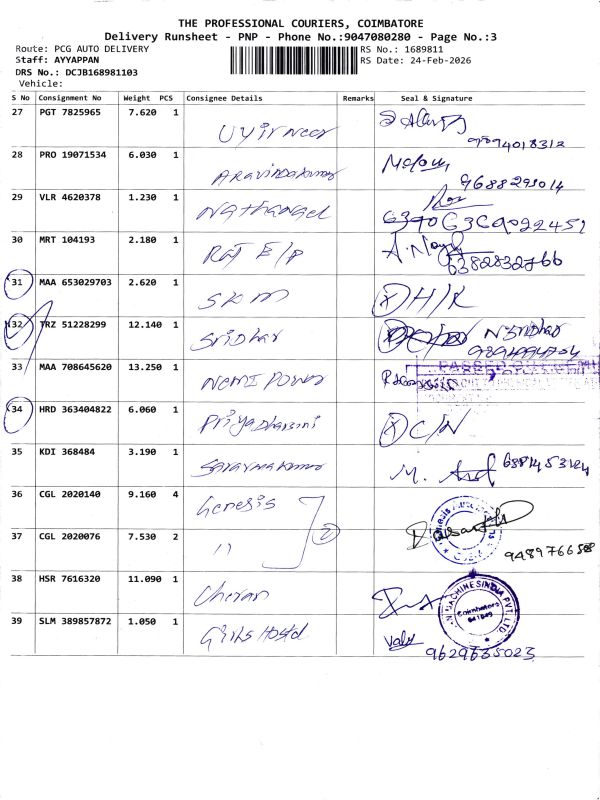 THE PROFESSIONAL COURIERS, COIMBATORE
Delivery Runsheet - PNP - Phone No.:9047080280 - Page No.:3
Route: PCG AUTO DELIVERY RS No.: 1689811
Staff: AYYAPPAN RS Date: 24-Feb-2026
DRS No.: DCJB168981103
Vehicle:
S No Consignment No Weight PCS Consignee Details Remarks Seal & Signature
27 PGT 7825965 7.620 1 Uyir neer
9894018312
28 PRO 19071534 6.030 1 Aravindakumar
9688293014
29 VLR 4620378 1.230 1 Nathangel
30 MRT 104193 2.180 1 Raj E/P
6382832766
31 MAA 653029703 2.620 1 SKM H/K
32 TRZ 51228299 12.140 1 Sridhar N Sridhar
33 MAA 708645620 13.250 1 Nemi Power
34 HRD 363404822 6.060 1 Priyadharsini C/N
35 KDI 368484 3.190 1 Saravanakumar M.
36 CGL 2020140 9.160 4 Genesis
37 CGL 2020076 7.530 2 11 2
9489766588
38 HSR 7616320 11.090 1 Cheran
MACHINES INDIA PVT. LTD.
Coimbatore
641049
39 SLM 389857872 1.050 1 Girls Hostel
9629635023